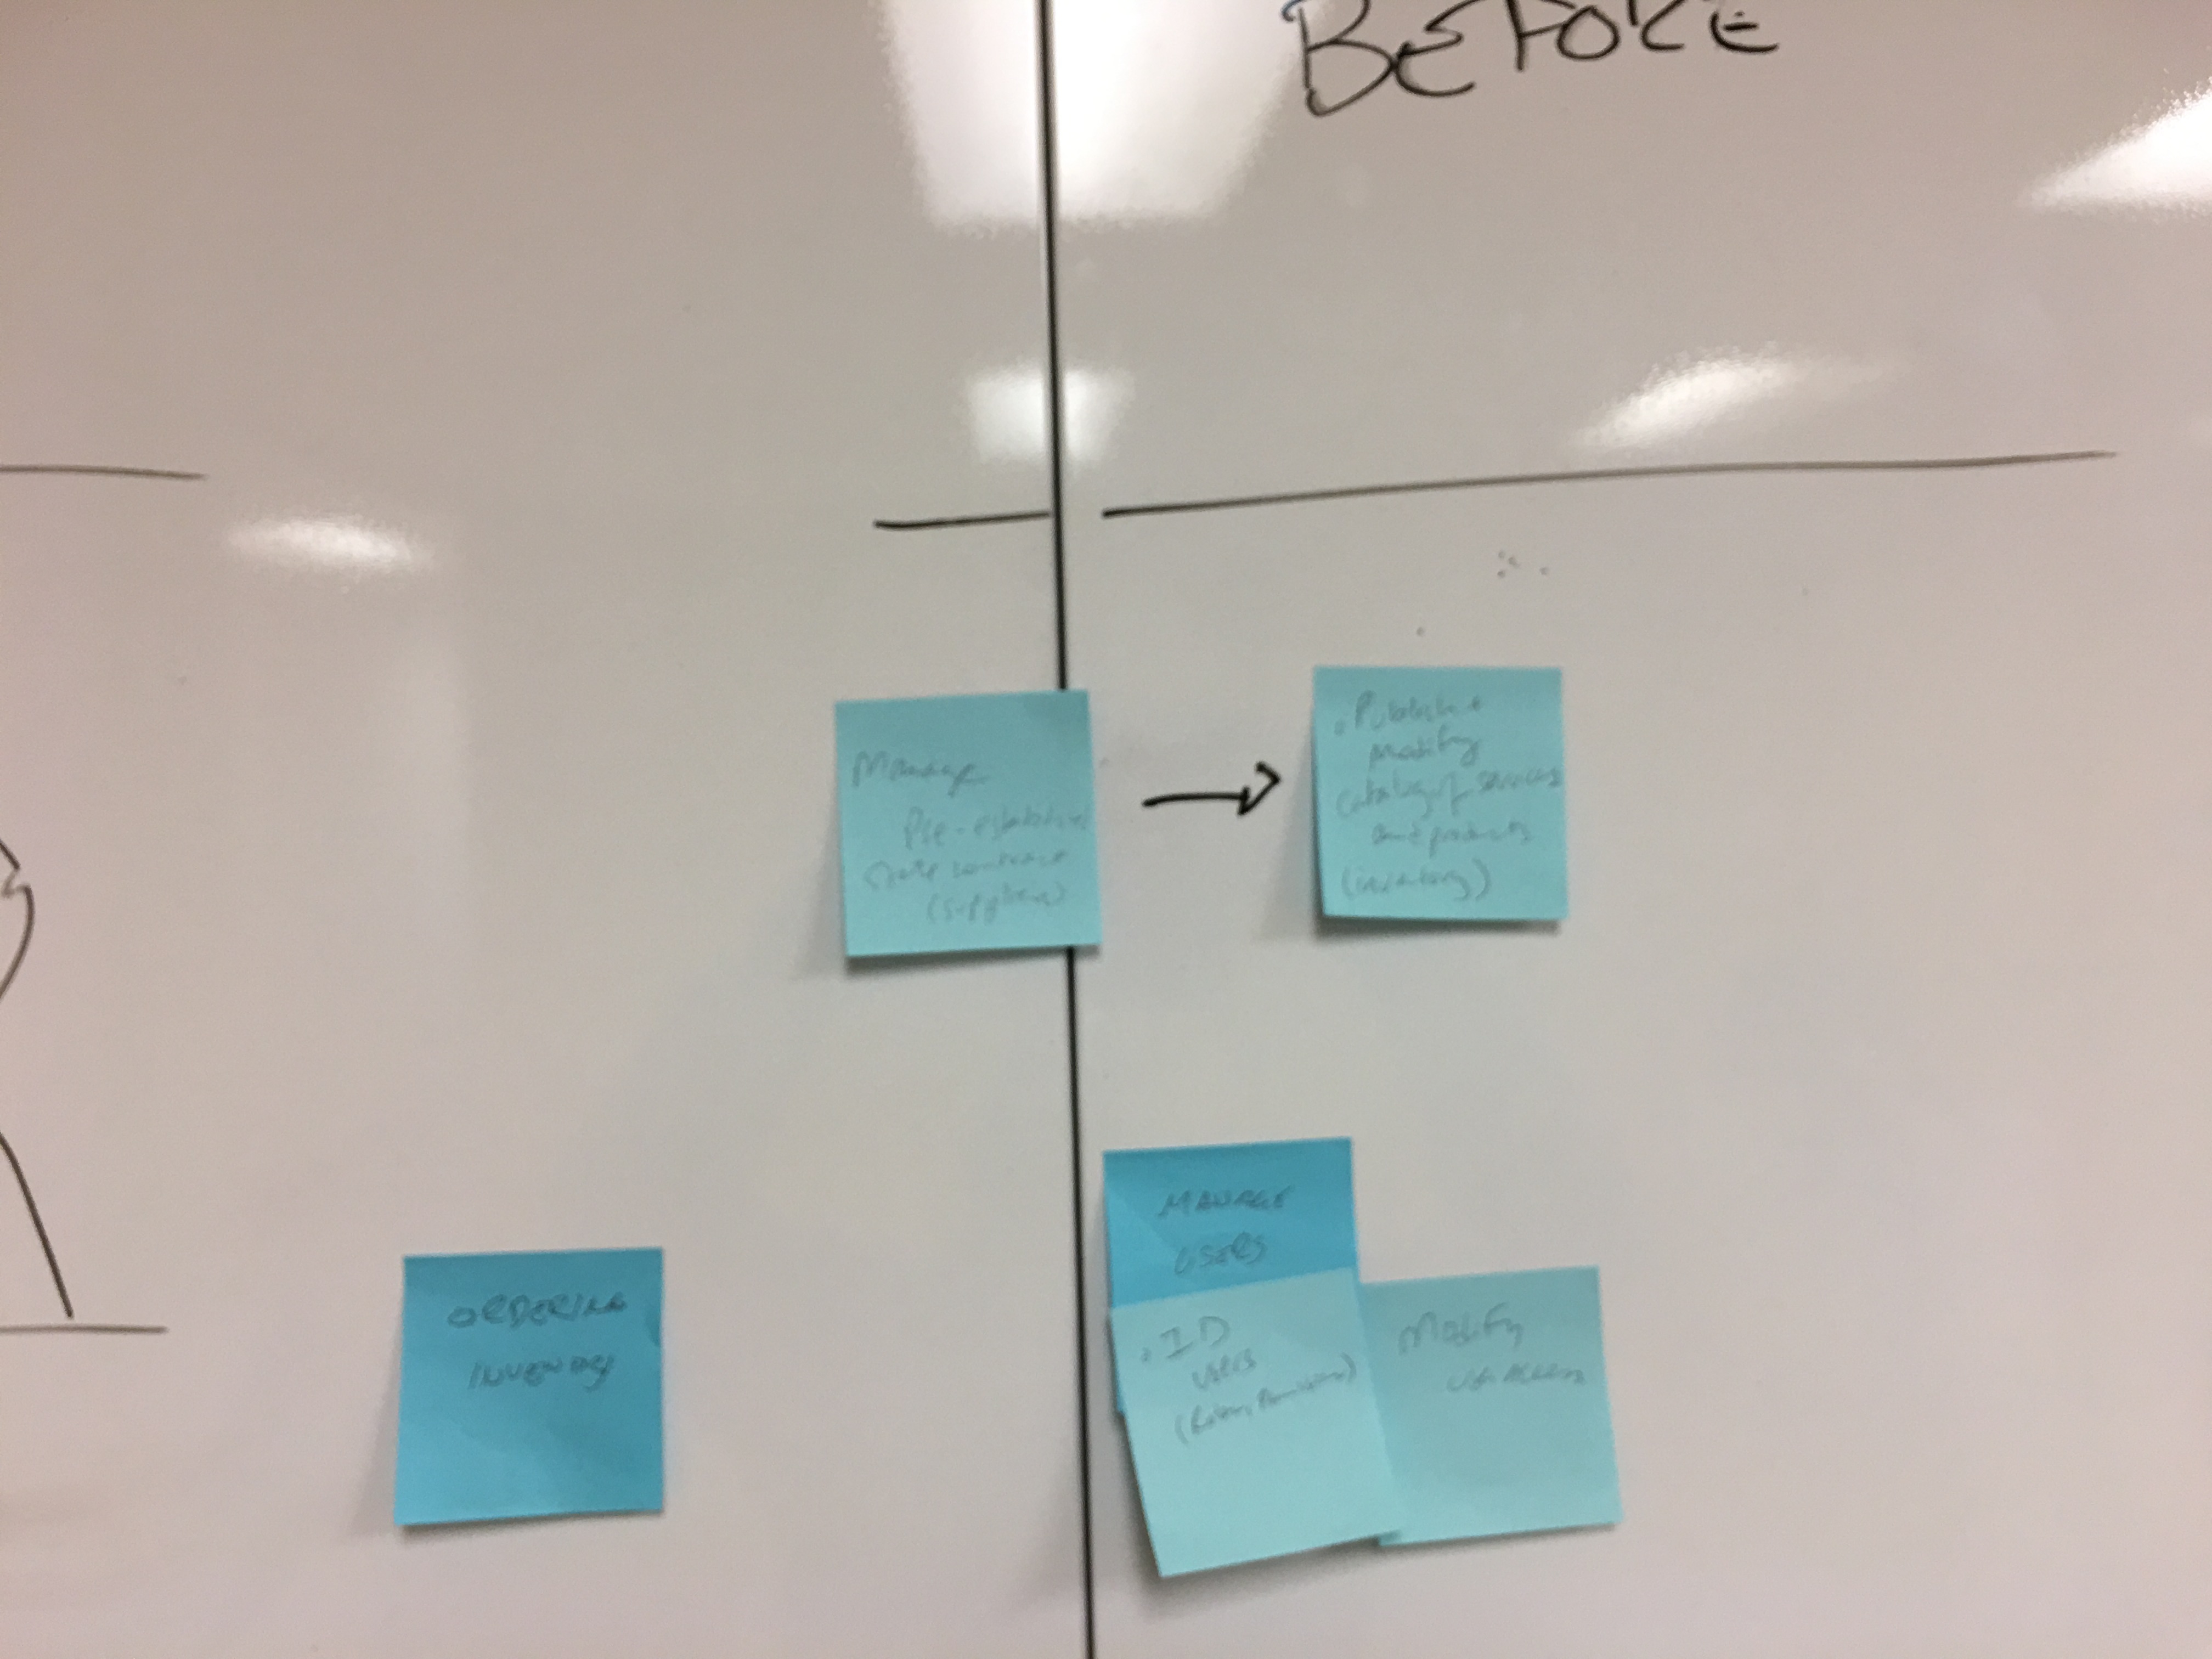 BEFORE
Manage
Pre-established
State contracts
(suppliers)
. Publish +
Modify
Catalog of services
and products
(inventory)
MANAGE
USERS
. ID
users
(Roles, Permissions)
Modify
ORDERING
INVENTORY